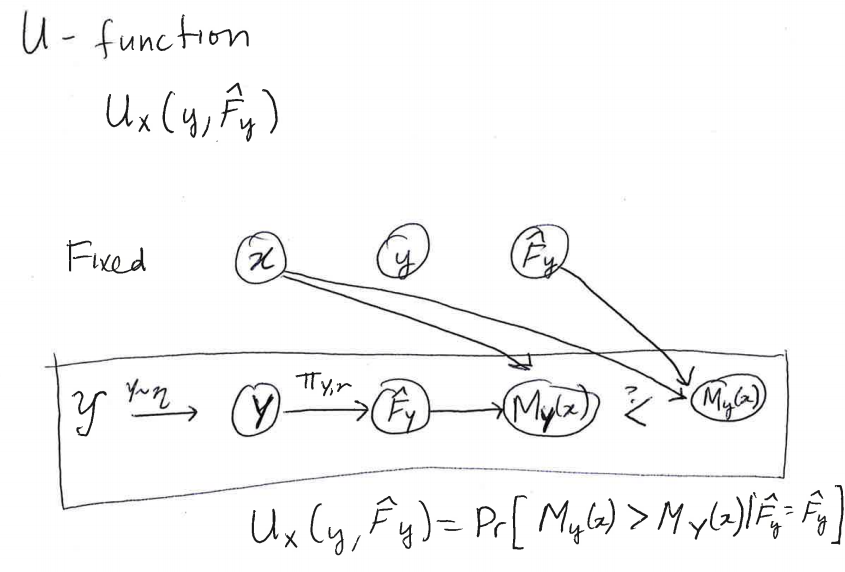 U-function
Uₓ(y, F̂_y)
Fixed x y F̂_y
𝒴 Y~η Y π_{Y,r} F̂_Y M_Y(x) ?< M_y(x)
Uₓ(y, F̂_y) = Pr[M_y(x) > M_Y(x) | F̂_y = F̂_y]